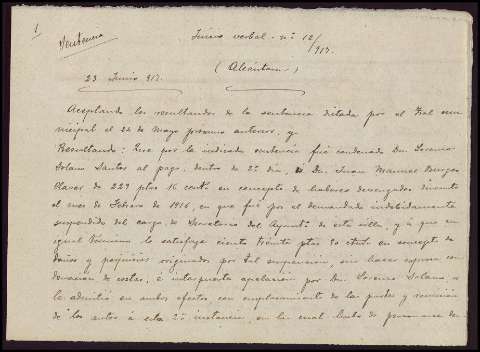 1
Sentencia
Juicio verbal - nº 12/917.
(Alcántara)
23 Junio 917.
Aceptando los resultandos de la sentencia dictada por el Tral mu-
nicipal el 22 de Mayo proximo anterior, y
Resultando: Que por la indicada sentencia fué condenado Dn. Lorenzo
Solano Santos al pago, dentro de 2º dia, á Dn. Juan Manuel Burgos
de 229 ptas 16 centº en concepto de haberes devengados durante
el mes de Febrero de 1916, en que fué por el demandado indebidamente
suspendido del cargo de Secretario del Ayuntº de esta villa, y á que en
igual termino le satisfaga ciento treinta ptas en concepto de
daños y perjuicios originados por tal suspension, sin hacer expresa con-
denacion de costas, é interpuesta apelacion por Dn. Lorenzo Solano se
le admitió en ambos efectos, con emplazamiento de las partes y remision
de los autos á esta 2ª instancia, en la cual hubo de personarse do-